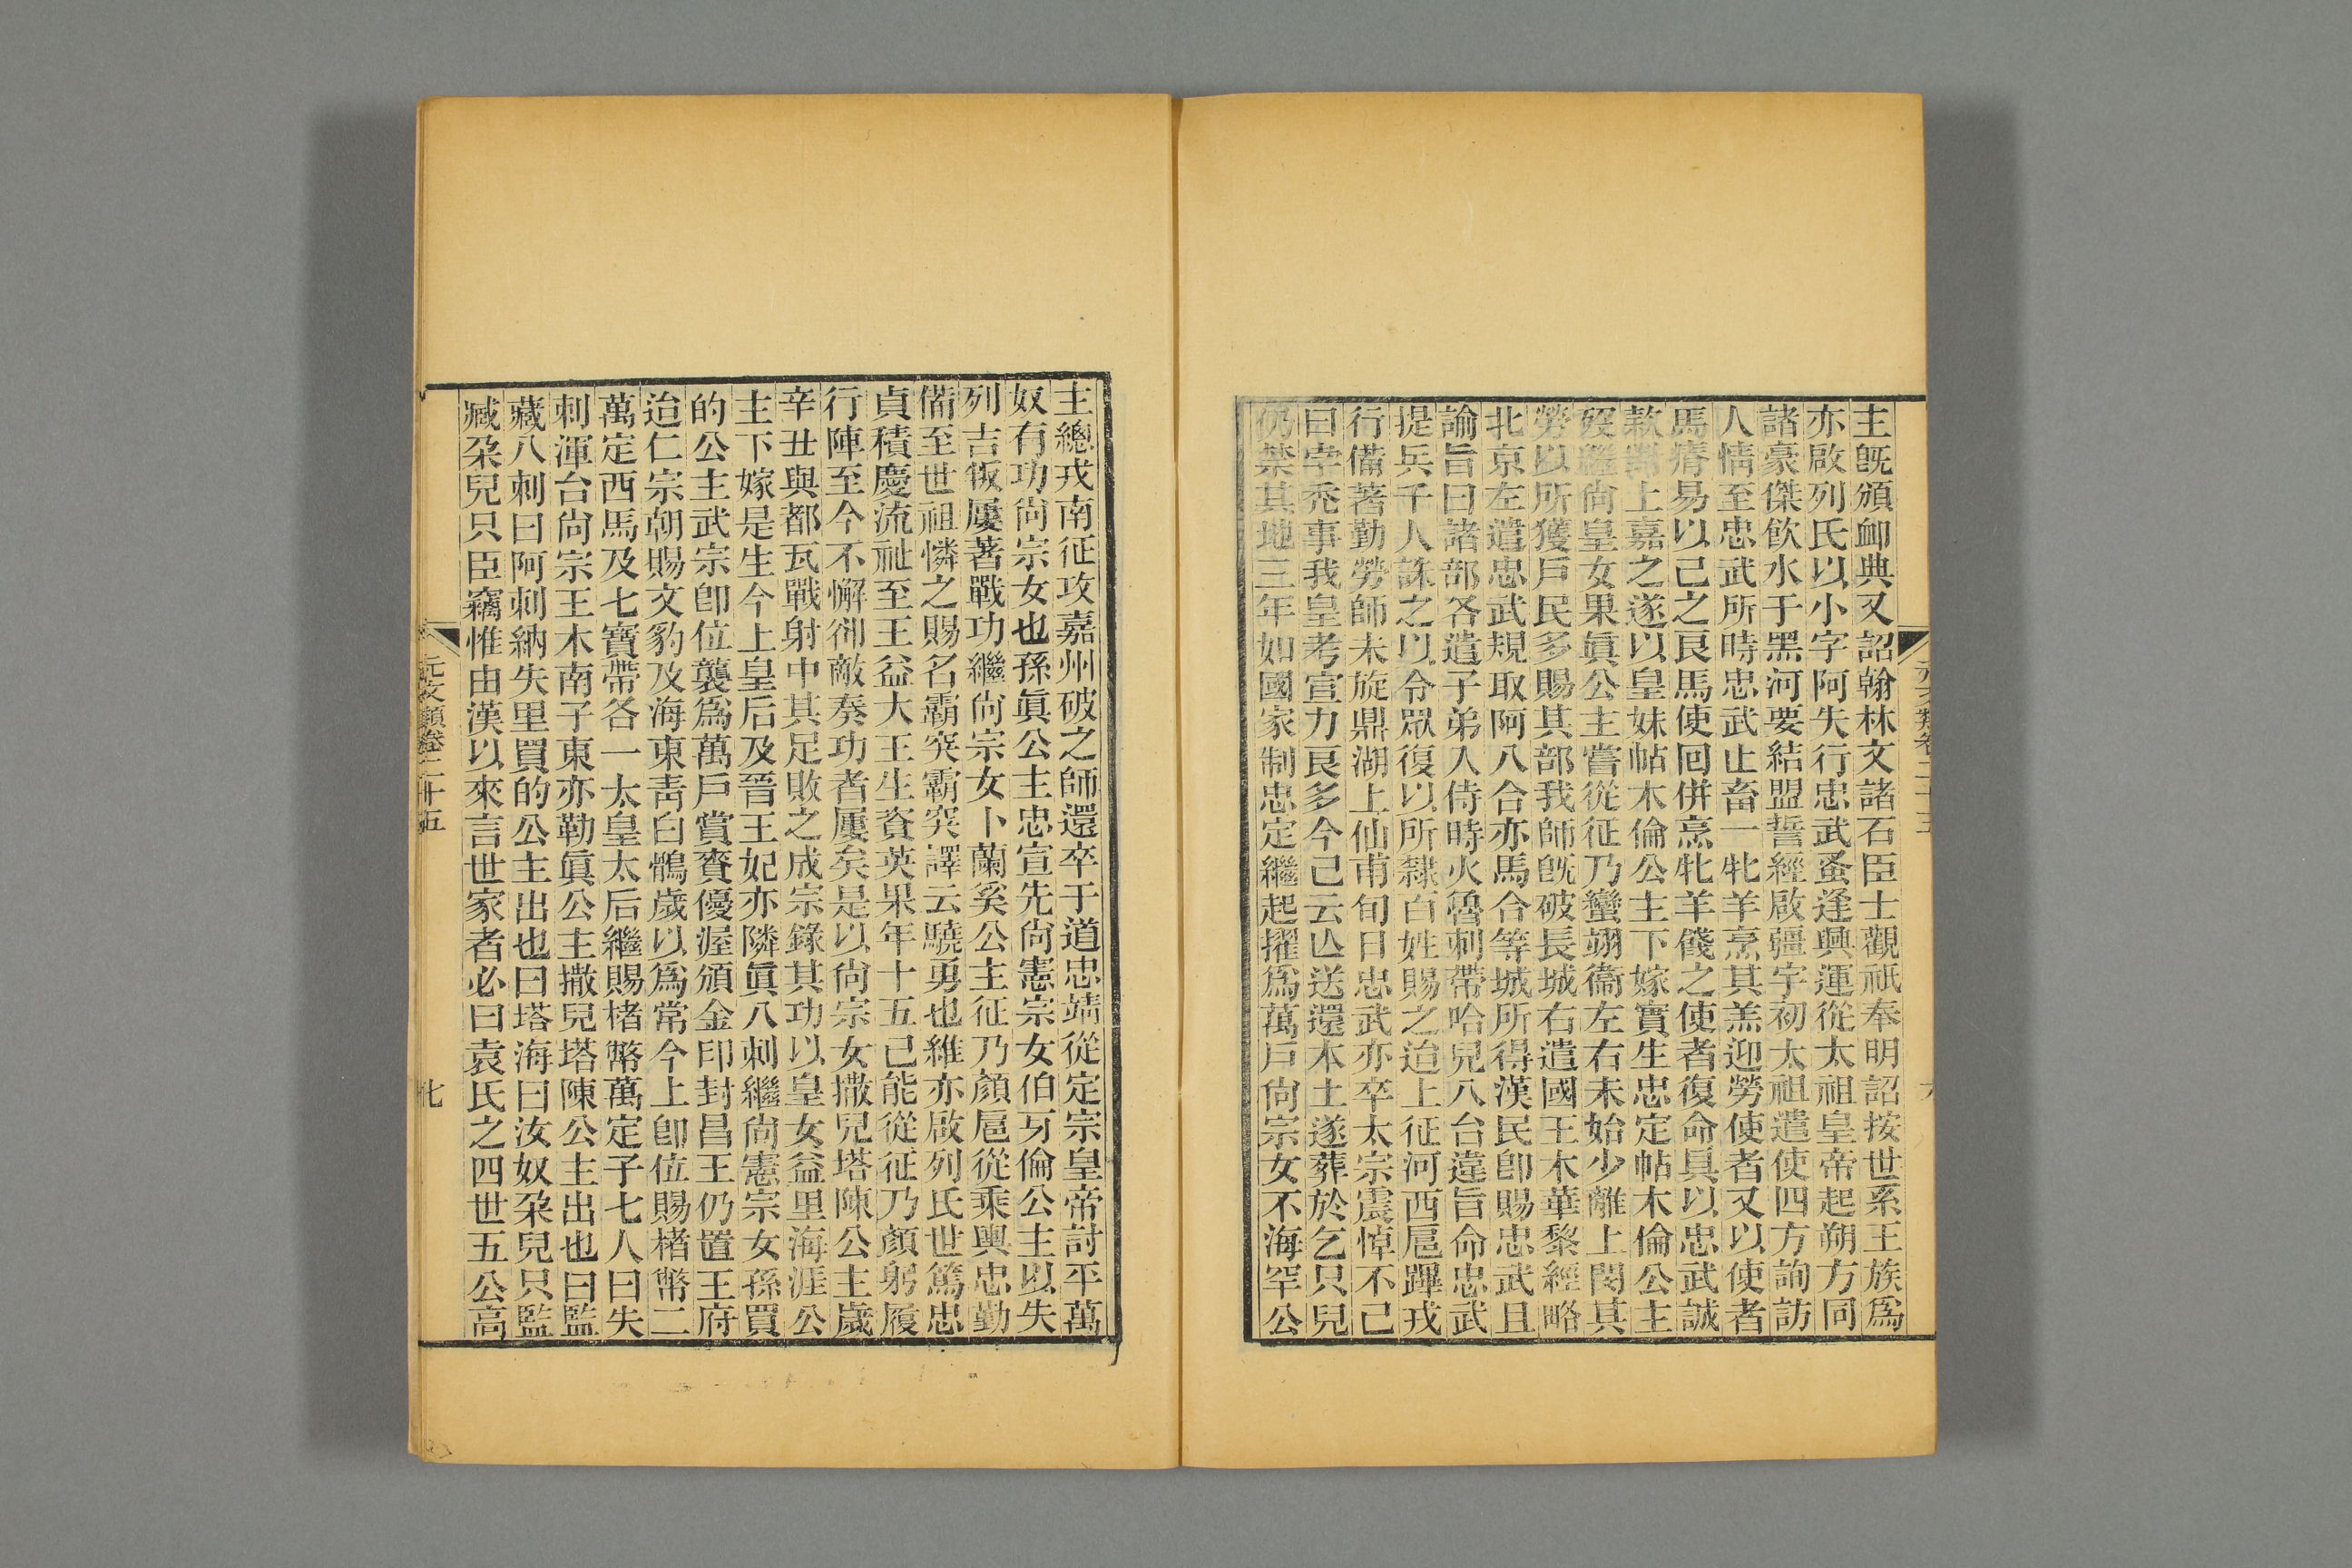 主旣頒衈典又詔翰林文諸石臣士觀祇奉明詔按世系王族爲
亦啟列氏以小字阿失行忠武蚤逢興運從太祖皇帝起朔方同
諸豪傑飮水于黑河要結盟誓經啟疆宇初太祖遣使四方詢訪
人情至忠武所時忠武止畜一牝羊烹其羔迎勞使者又以使者
馬瘠易以己之良馬使回併烹牝羊餞之使者復命具以忠武誠
款 上嘉之遂以皇妹帖木倫公主下嫁實生忠定帖木倫公主
歿繼尙皇女果眞公主嘗從征乃蠻翊衞左右未始少離上閔其
勞以所獲戶民多賜其部我師旣破長城右遣國王木華黎經略
北京左遣忠武規取阿八合亦馬合等城所得漢民卽賜忠武且
諭旨曰諸部各遣子弟入侍時火魯刺帶哈兒八台違旨命忠武
提兵千人誅之以令眾復以所隸百姓賜之迨上征河西扈蹕戎
行備著勤勞師未旋鼎湖上仙甫旬日忠武亦卒太宗震悼不已
曰孛禿事我皇考宣力良多今己云亾送還本土遂葬於乞只兒
仍禁其地三年如國家制忠定繼起擢爲萬戶尙宗女不海罕公
元文類卷二十五
主總戎南征攻嘉州破之師還卒于道忠靖從定宗皇帝討平萬
奴有功尙宗女也孫眞公主忠宣先尙憲宗女伯牙倫公主以失
列吉叛屢著戰功繼尙宗女卜蘭奚公主征乃顏扈從乘輿忠勤
備至世祖憐之賜名霸突霸突譯云驍勇也維亦啟列氏世篤忠
貞積慶流祉至王益大王生資英果年十五己能從征乃顏躬履
行陣至今不懈御敵奏功者屢矣是以尙宗女撒兒塔陳公主歲
辛丑與都瓦戰射中其足敗之成宗錄其功以皇女益里海涯公
主下嫁是生今上皇后及晉王妃亦隣眞八刺繼尙憲宗女孫買
的公主武宗卽位襲爲萬戶賞賚優渥頒金印封昌王仍置王府
迨仁宗朝賜文豹及海東靑白鶻歲以爲常今上卽位賜楮幣二
萬定西馬及七寶帶各一太皇太后繼賜楮幣萬定子七人曰失
刺渾台尙宗王木南子東亦勒眞公主撒兒塔陳公主出也曰監
藏八刺曰阿刺納失里買的公主出也曰塔海曰汝奴朶兒只監
臧朶兒只臣竊惟由漢以來言世家者必曰袁氏之四世五公高
元文類卷二十五